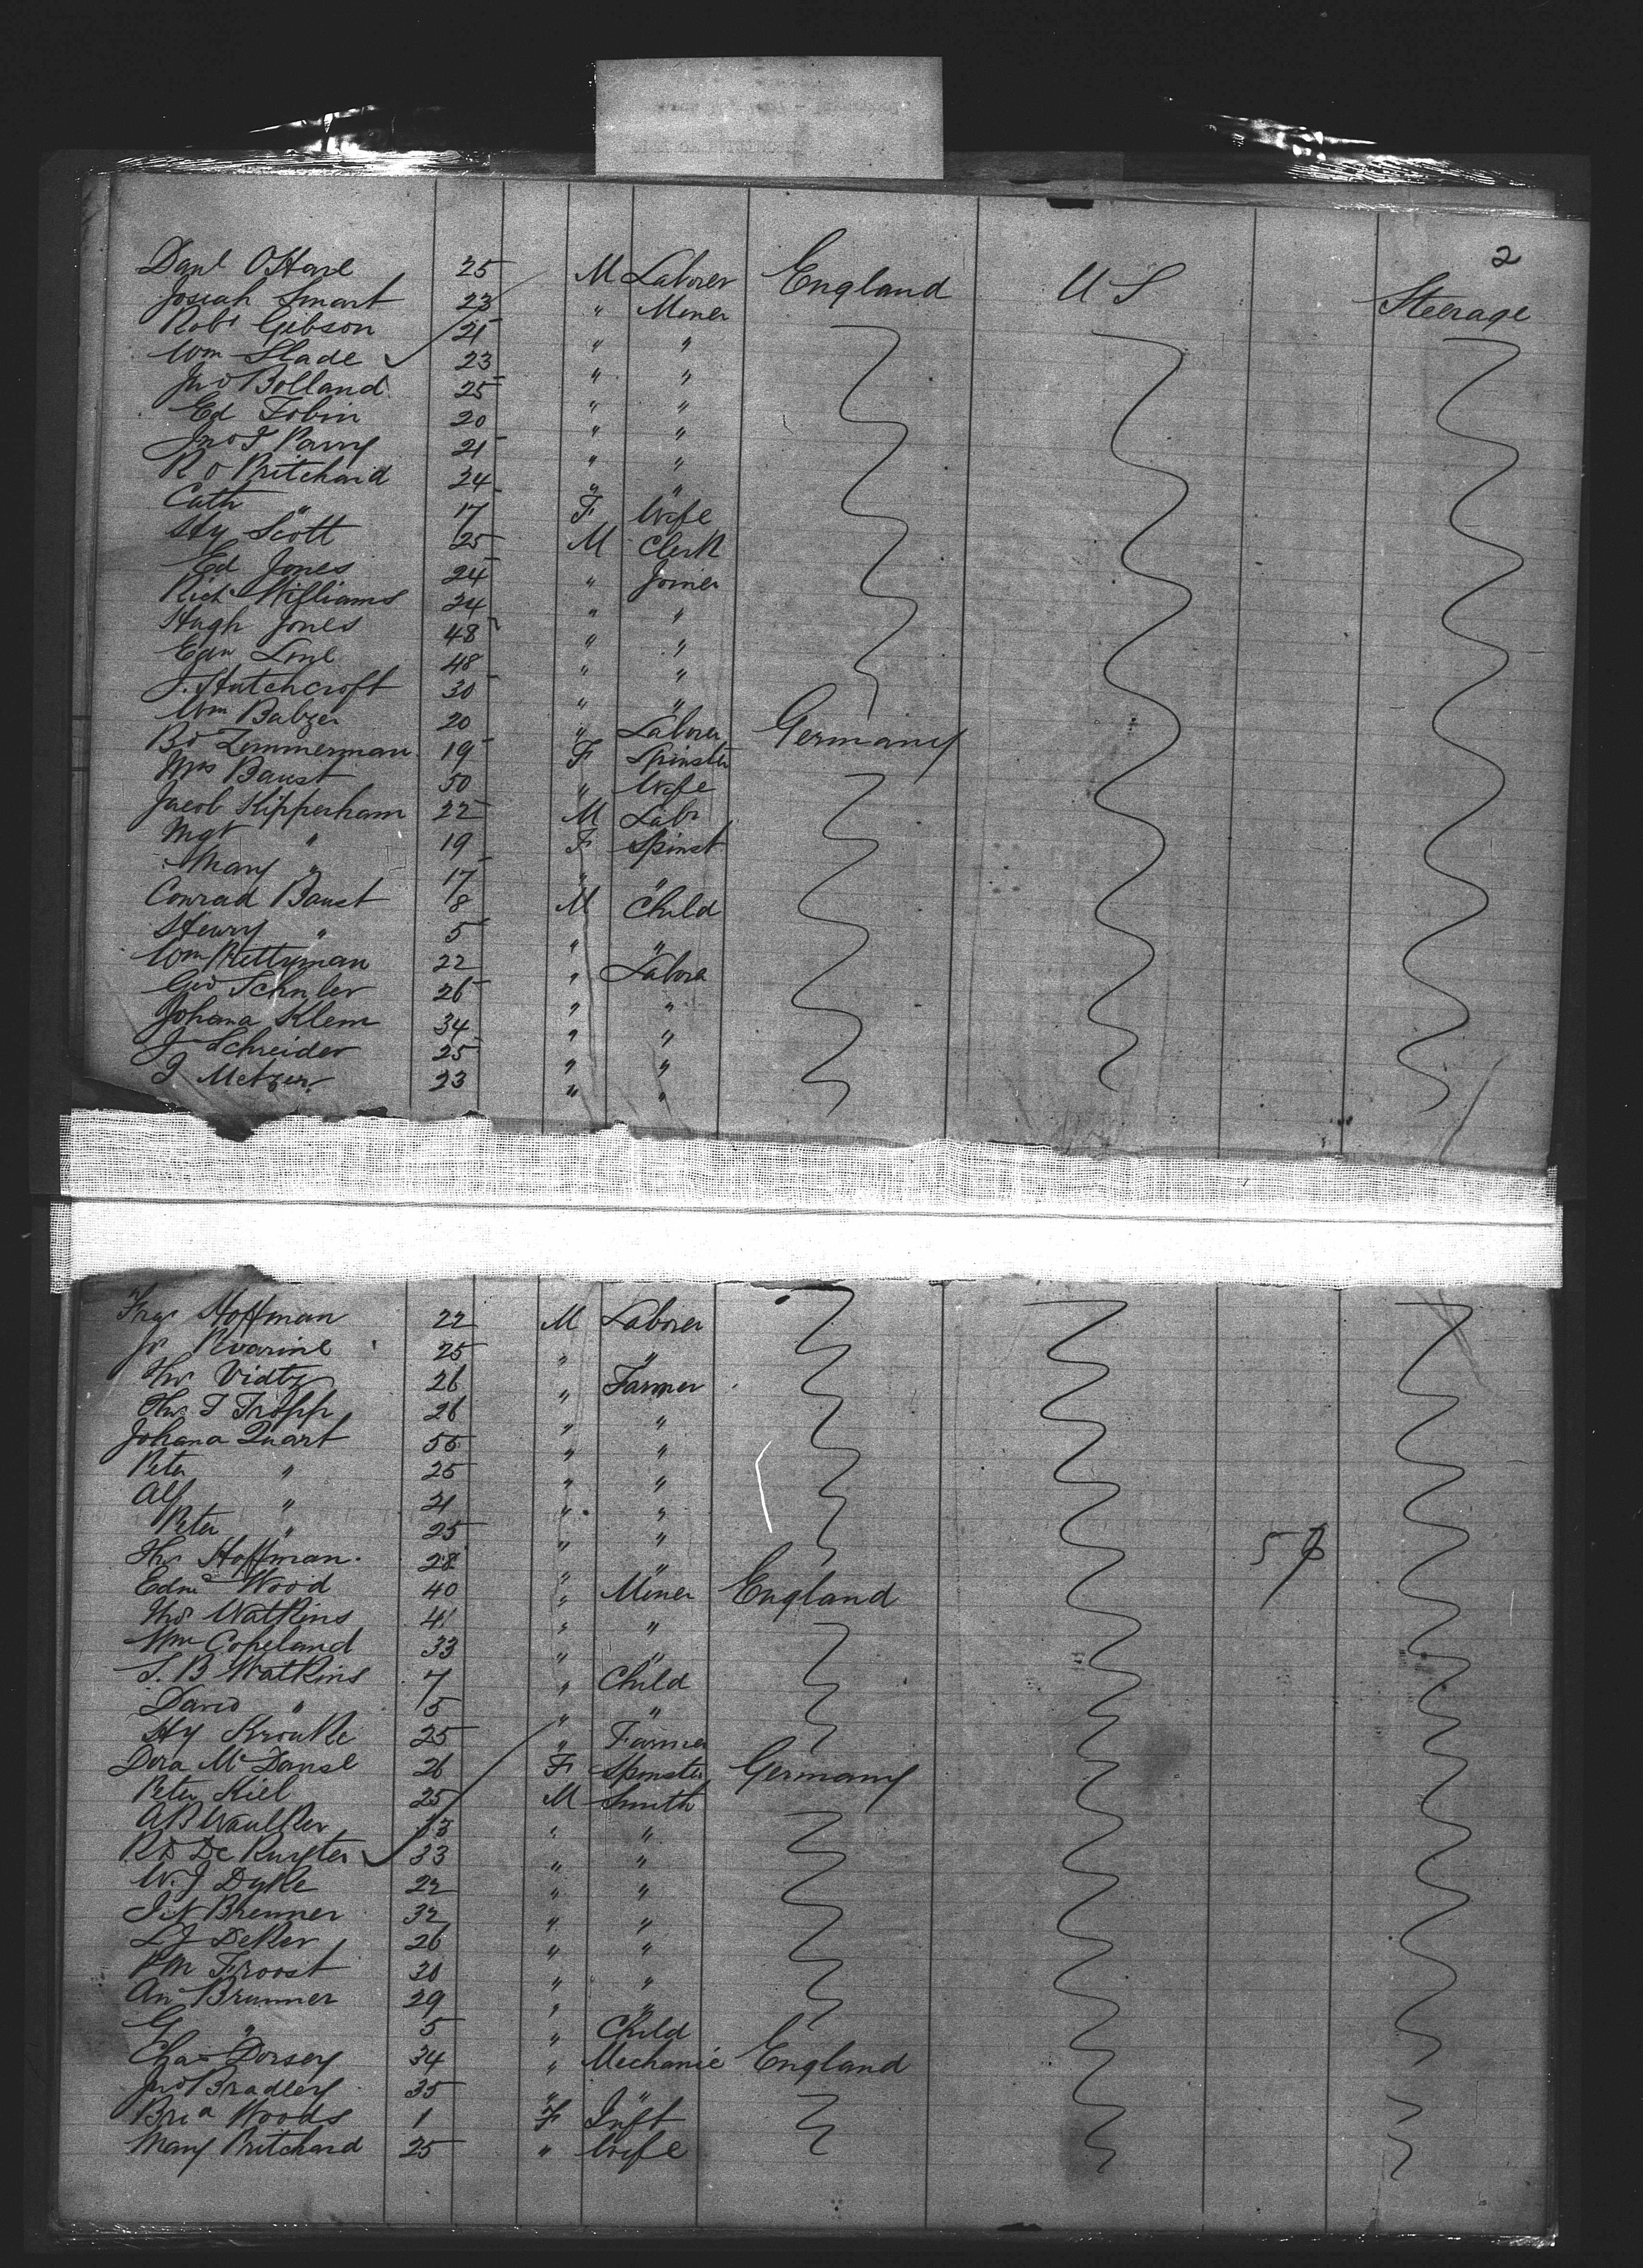 2
Danl OHare 25 M Laborer England U S Steerage
Josiah Smart 23 " Miner
Robt Gibson 21 " "
Wm Slade 23 " "
Jno Bolland 25 " "
Ed Tobin 20 " "
Jno T Parry 21 " "
R O Pritchard 24 " "
Cath " 17 F Wife
Hy Scott 25 M Clerk
Ed Jones 24 " Joiner
Richd Williams 34 " "
Hugh Jones 48 " "
Edw Line 48 " "
J. Hutchcroft 30 " "
Wm Balzer 20 " Laborer Germany
Bo Zimmerman 19 F Spinster
Mrs Baust 50 " Wife
Jacob Kipperham 22 M Labr
Mgt " 19 F Spinst
Mary " 17 " "
Conrad Baust 8 M Child
Henry " 5 " "
Wm Prettyman 22 " Labora
Geo Schuler 26 " "
Johana Klem 34 " "
J Schreider 25 " "
J Metzer 23 " "
Fras Hoffman 22 M Laborer
Jo 25 " "
Ths Vidtz 26 " Farmer
Ths T Tropp 26 " "
Johana Quart 55 " "
Peter " 25 " "
Alf " 21 " "
Peter " 25 " "
Ths Hoffman 28 " "
Edmd Wood 40 " Miner England
Thos Watkins 41 " "
Wm Copeland 33 " "
S. B Watkins 7 " Child
David " 5 " "
Hy Kronke 25 " Farmer
Dora Mc Dansl 26 F Spinster Germany
Peter Kiel 25 M Smith
A B Waulker 33 " "
R D De Ruyter 33 " "
W. J Dyke 22 " "
J N Brenner 32 " "
L J Deker 26 " "
P M Froost 30 " "
An Brunner 29 " "
G " 5 " Child
Chas Dorsey 34 " Mechanic England
Jno Bradley 35 " "
Bria Woods 1 F Inft
Mary Pritchard 25 " Wife